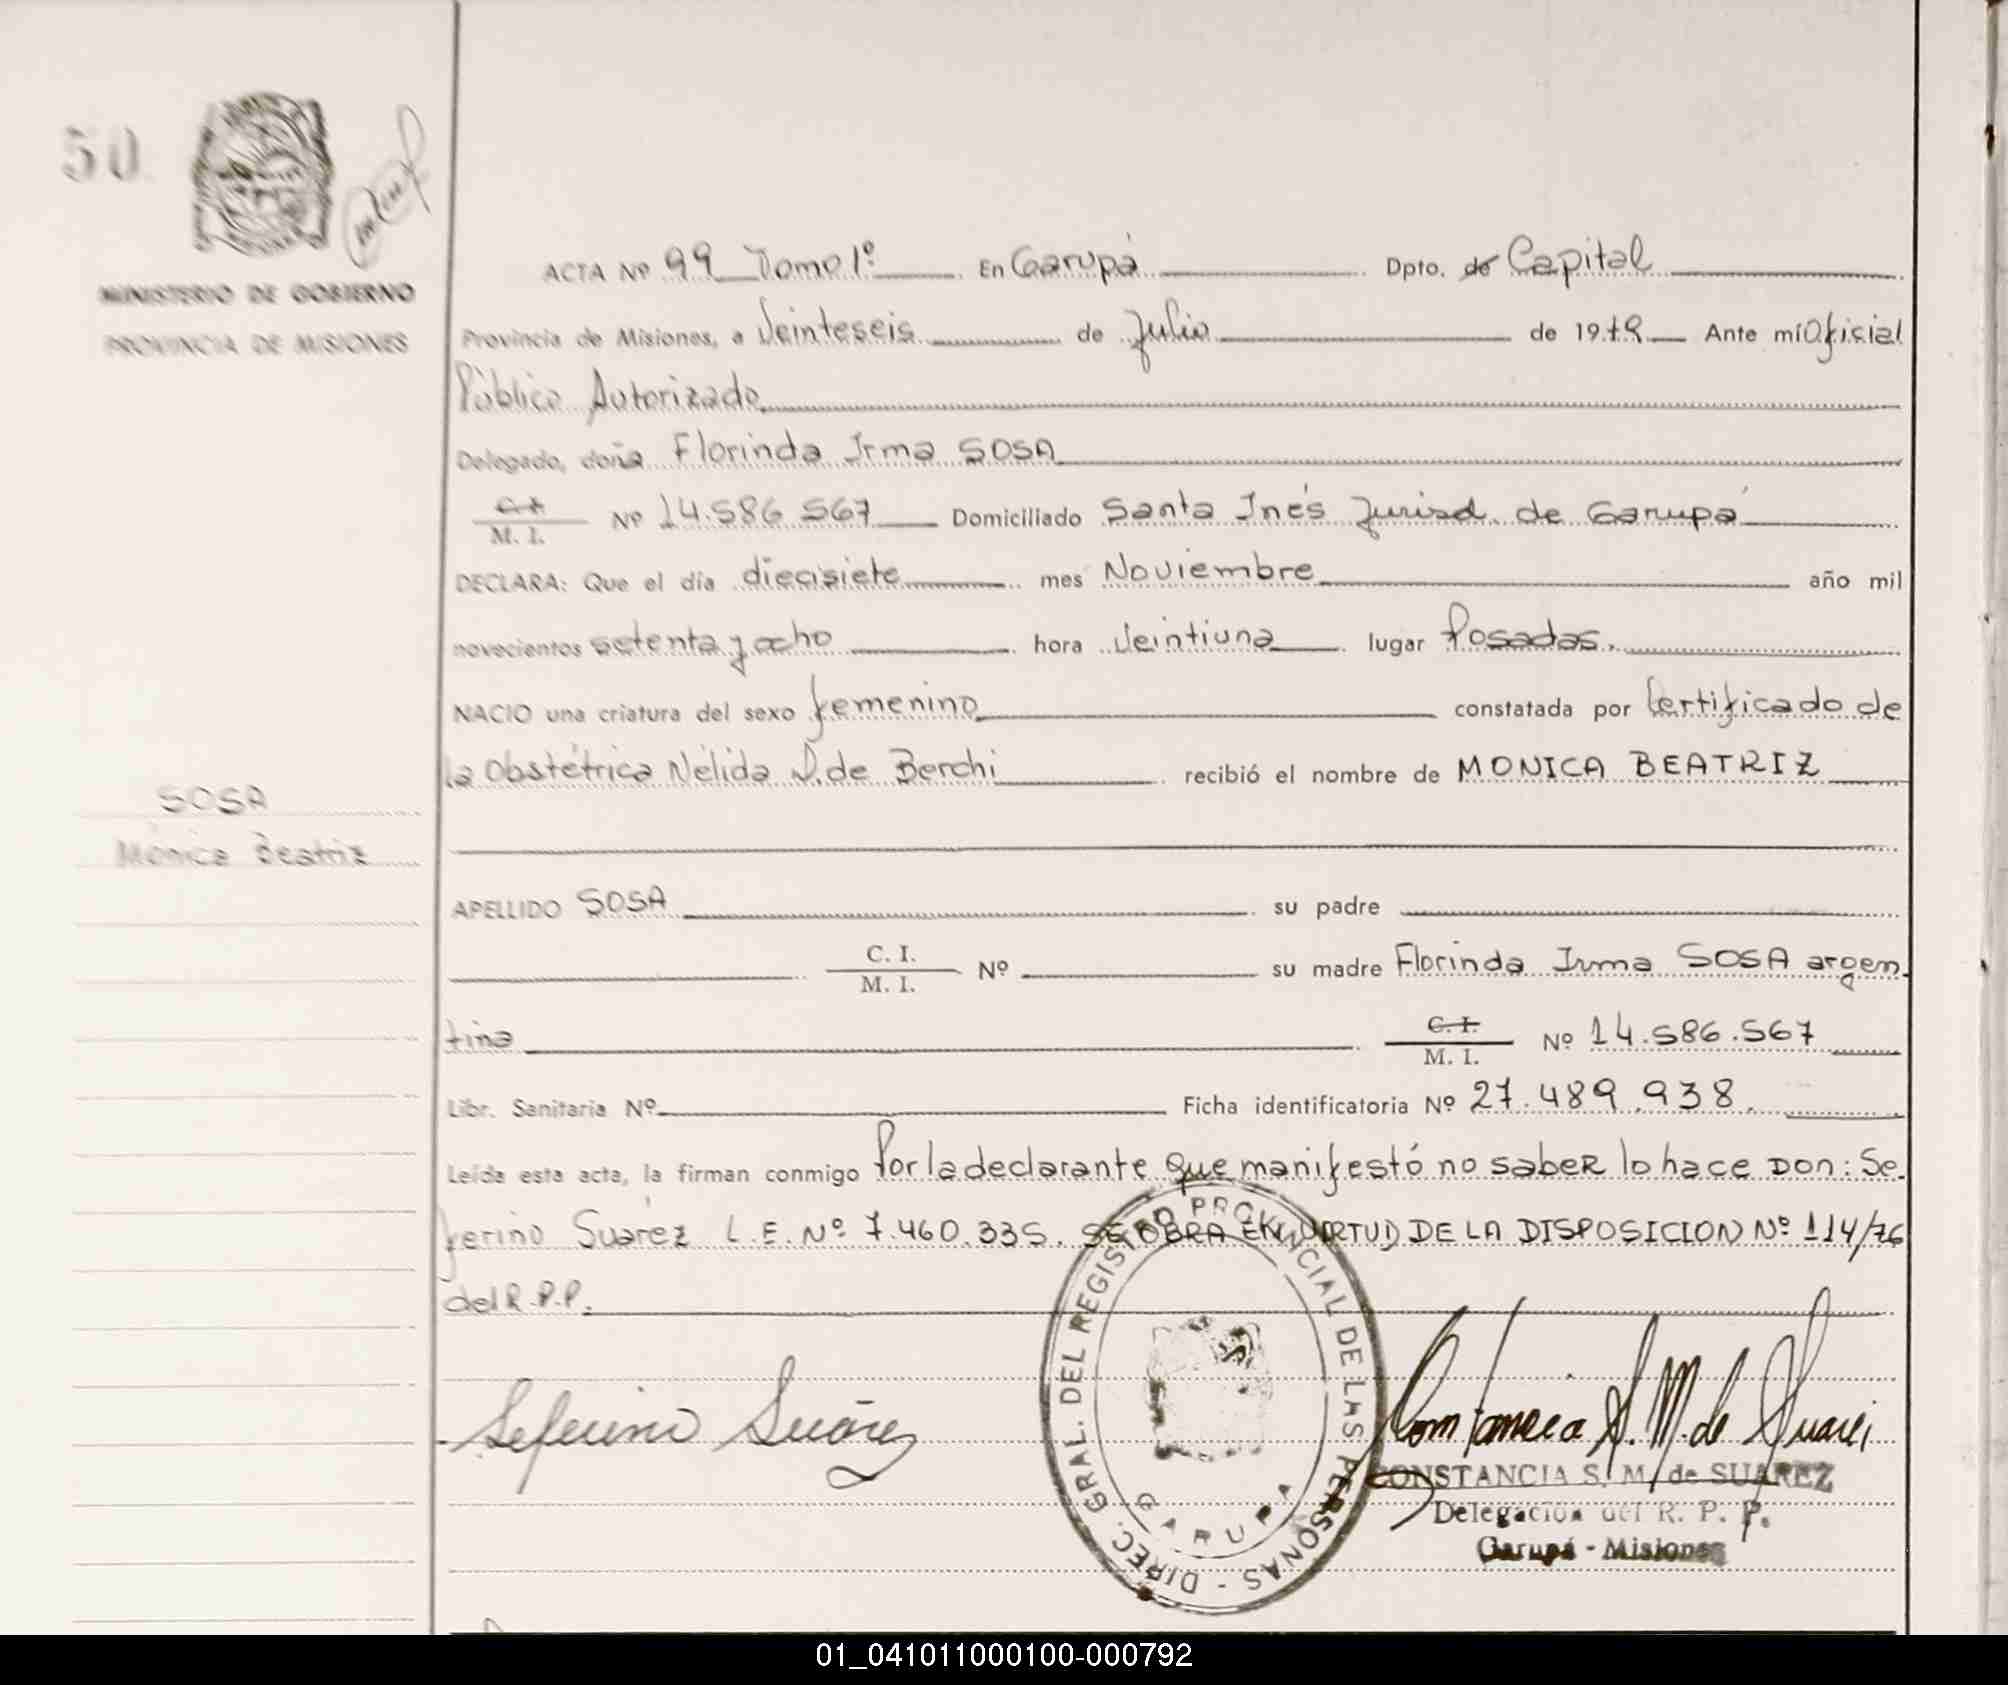 50
MINISTERIO DE GOBIERNO
PROVINCIA DE MISIONES
ACTA Nº 99 Tomo 1º En Garupá Dpto. de Capital
Provincia de Misiones, a Veinteseis de Julio de 1979 Ante mí Oficial
Público Autorizado
Delegado, doña Florinda Irma SOSA
C.I.
M. I. Nº 14.586 567 Domiciliado Santa Inés Jurisd. de Garupá
DECLARA: Que el día diecisiete mes Noviembre año mil
novecientos setenta y ocho hora Veintiuna lugar Posadas.
NACIO una criatura del sexo femenino constatada por Certificado de
la Obstétrica Nélida D. de Berchi recibió el nombre de MONICA BEATRIZ
SOSA
Mónica Beatriz
APELLIDO SOSA su padre
C. I.
M. I. Nº su madre Florinda Irma SOSA argen
tina C. I.
M. I. Nº 14.586.567
Libr. Sanitaria Nº Ficha identificatoria Nº 27.489.938.
Leída esta acta, la firman conmigo Por la declarante que manifestó no saber lo hace DON: Se
ferino Suárez L.E. Nº 7.460.335. SE OBRA EN VIRTUD DE LA DISPOSICION Nº 114/76
del R.P.P.
Seferino Suárez
DIREC. GRAL. DEL REGISTRO PROVINCIAL DE LAS PERSONAS -
GARUPA
Constancia S. M. de Suarez
CONSTANCIA S. M. de SUAREZ
Delegación del R. P. P.
Garupá - Misiones
01_041011000100-000792